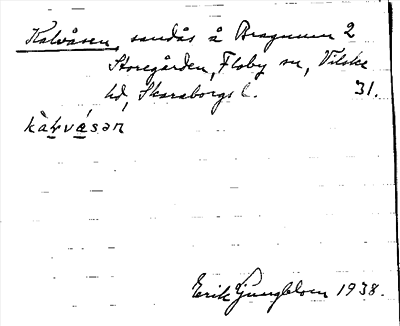 Kalvåsen, sandås å Bragnum 2
Storegården, Floby sn, Vilske
hd, Skaraborgs l. 31.
kàkvásən
Erik Ljungblom 1938.